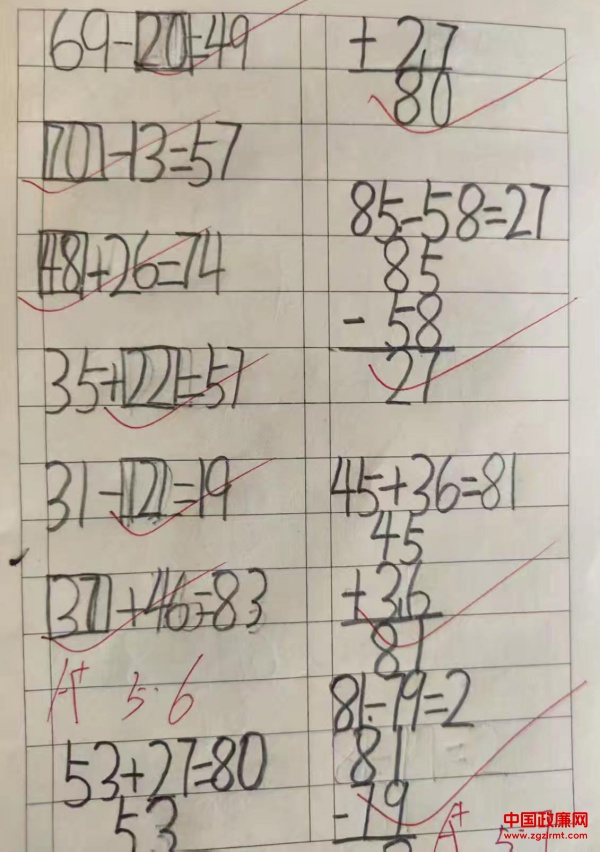 69-20=49
70-13=57
48+26=74
35+22=57
31-12=19
37+46=83
A+ 5.6
53+27=80
53
+27
80
85-58=27
85
-58
27
45+36=81
45
+36
81
81-79=2
81
-79
A+
中国政廉网
www.zgzlrmt.com